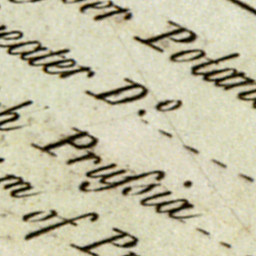 er Polan
eater D.º - - - -
h Pruſsia - - -
m of Pr